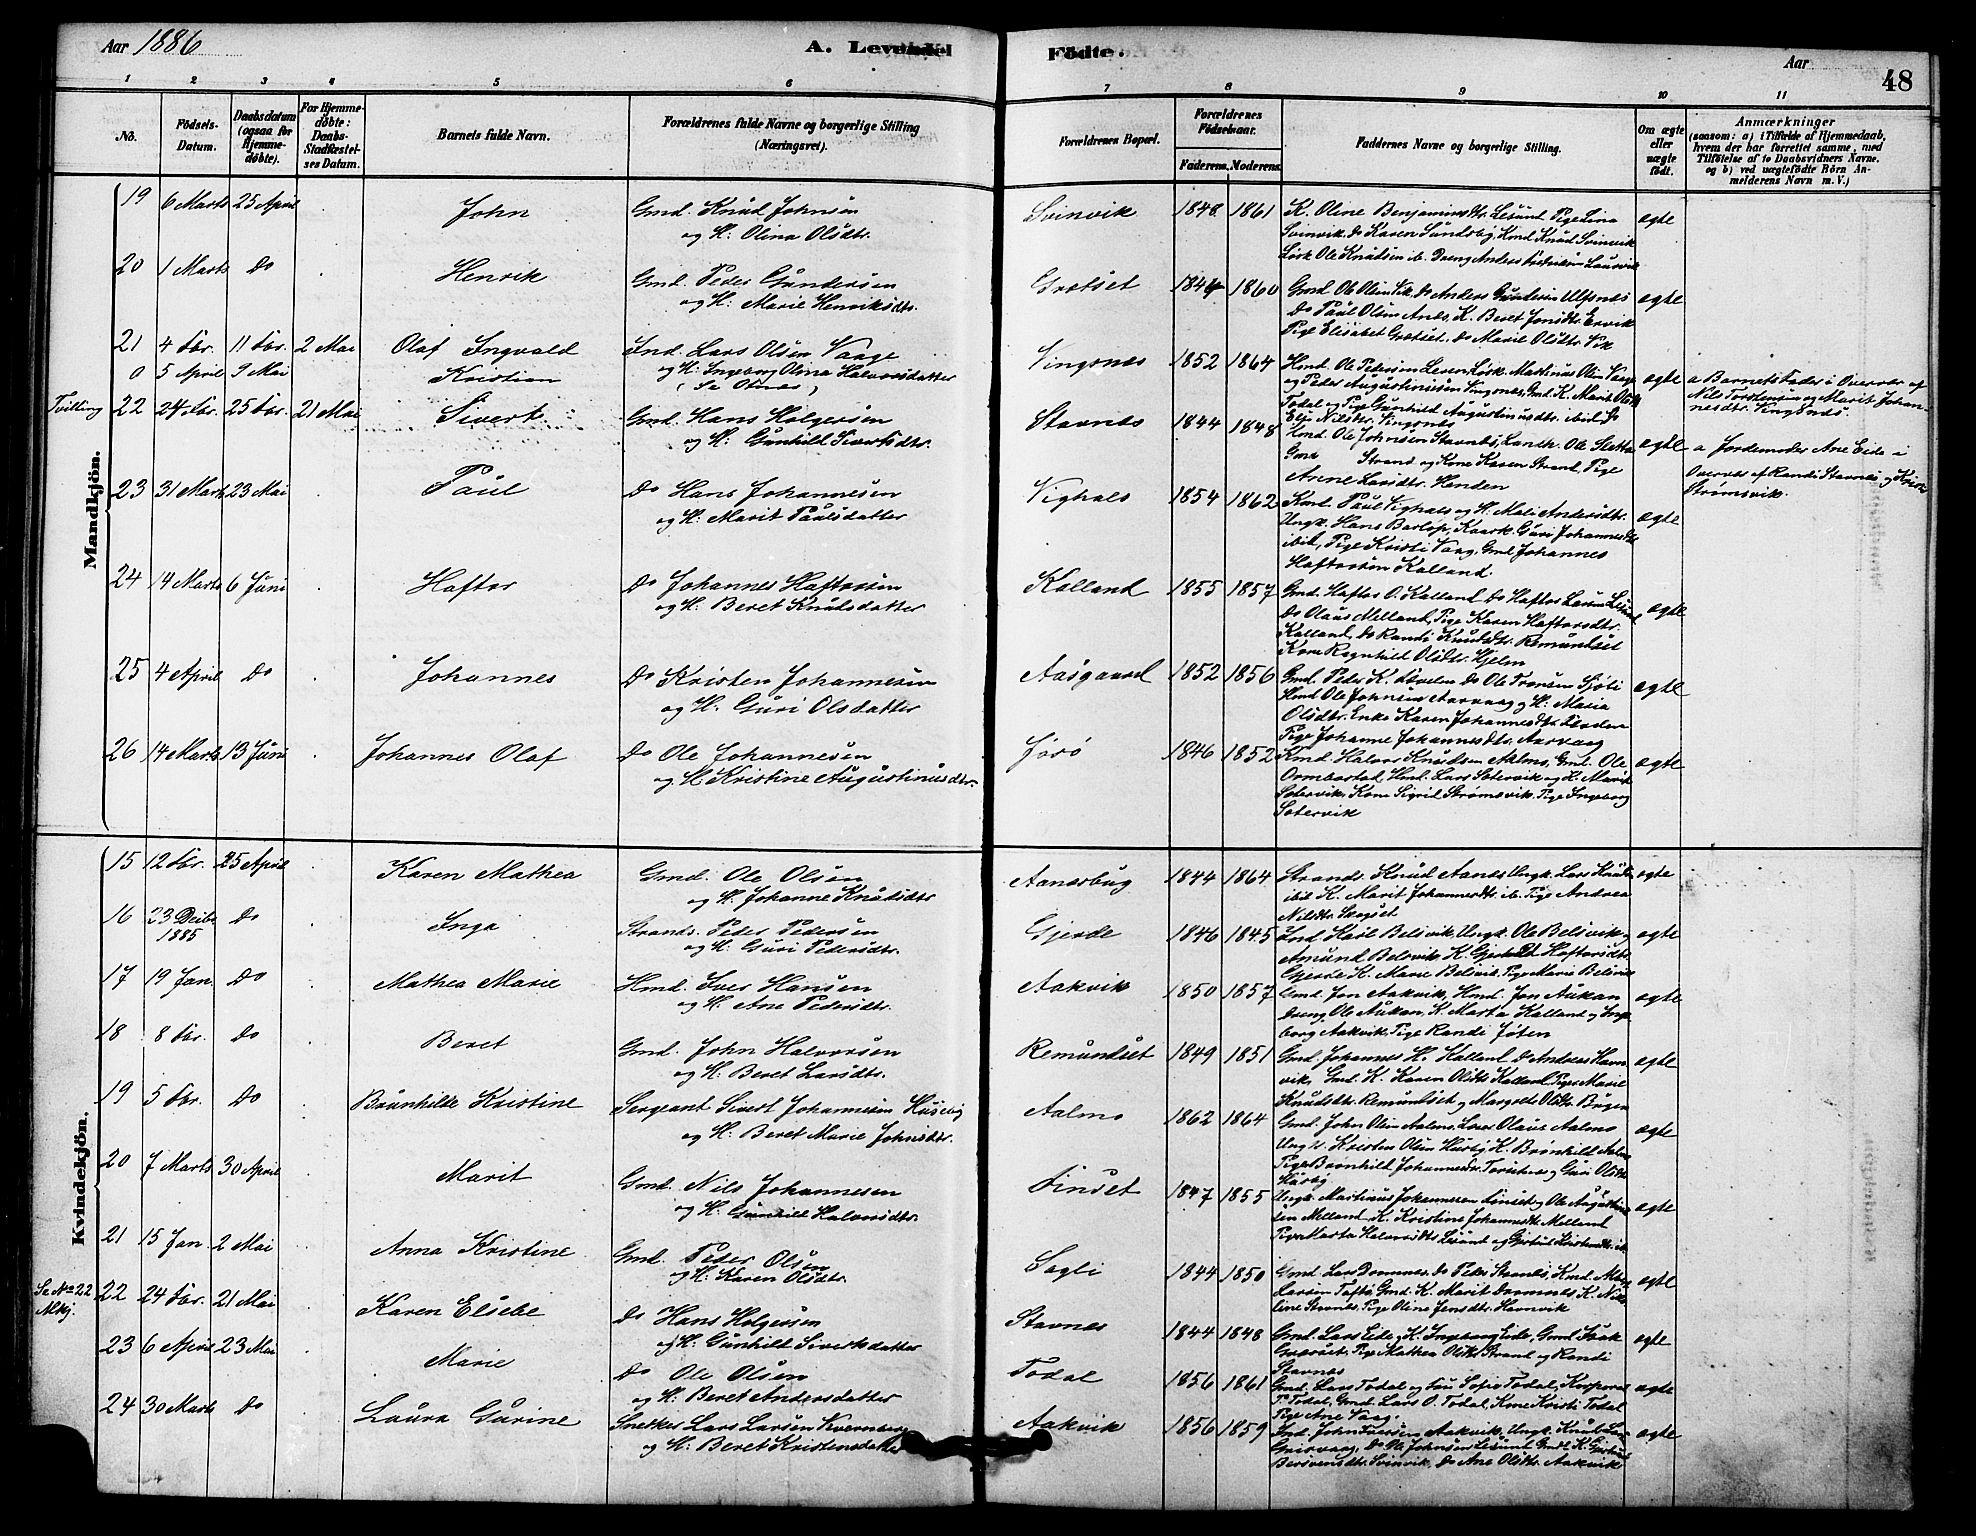 Aar 1886
A. Levende
Födte.
Aar
48
1 2 3 4 5 6 7 8 9 10 11
No.
Födsels-
Datum.
Daabsdatum
(ogsaa for
Hjemme-
döbte).
For Hjemme-
döbte:
Daabs-
Stadfæstel-
ses Datum.
Barnets fulde Navn.
Forældrenes fulde Navne og borgerlige Stilling
(Næringsvei).
Forældrenes Bopæl.
Forældrenes
Födselsaar.
Faderens. Moderens.
Faddernes Navne og borgerlige Stilling.
Om ægte
eller
uægte
födt.
Anmærkninger
(saasom: a) i Tilfælde af Hjemmedaab,
hvem der har forrettet samme, med
Tilföielse af to Daabsvidners Navne,
og b) ved uægtefödte Börn An-
melderens Navn m. V.)
Mandkjön.
19 6 Marts 25 April John
Gmd. Knud Johnsen
og H: Olina Olsdtr.
Svinvik 1848 1861
K. Oline Benjaminsdtr. Lesund Pige Lina
Svinvik, do Karen Sundsbø, Kmd Knud Svinvik
Lösk Ole Knudsen ib. Dreng Anders Fredriksen
ægte
20 1 Marts do Henrik
Gmd. Peder Gundersen
og H: Marie Henriksdtr.
Grotset 1860
Gmd Ole Olsen Vik, do Anders Gundersen Ulfsnes
do Paul Olsen Anes, K. Beret Jonsdtr. Ervik
Pige Elisabet Grotset, do Marie Olsdtr. Vik
ægte
21 4 Fbr. 11 Fbr. 2 Mai Olaf Ingvald
a 5 April 9 Mai Kristian
Ind. Lars Olsen Vaage
og H: Ingeborg Olina Halvorsdatter
(Se Otnes)
Vingsnes 1852 1864
Hmd. Ole Petersen Lesen, Lösk. Mathinus Olsen Vaage
og Peder Augustinussen Vingsnes, Gmd. K. Marit Olsdtr
Todal og Pige Gunhild Augustinusdtr. ibid. do
Eli Nilsdtr. Vingsnes
ægte
a Barnets Fader i Overvær af
Nils Torstensen og Marit Johan-
nesdtr. Vingsnes.
Tvilling 22 24 Fbr. 25 Fbr. 21 Mai Sivert
Gmd. Hans Holgersen
og H: Gunhild Sivertsdtr.
Stavnes 1844 1848
Hmd. Ole Johnsen Stavnes, Landh. Ole Sletta
Gmd Strand og Kone Karen Strand, Pige
Arene Larsdtr. Henden
ægte
a Jordemoder Ane Eide i
Overvær af Randi Stavnes og
Strømsvik.
23 31 Marts 23 Mai Paul
Do Hans Johannesen
og H: Marit Paulsdatter
Vighals 1854 1862
Kmd. Paul Vighals og H. Mali Andersdtr.
Ungk. Hans Barlop, Kaark Guri Johannesdtr
ibid, Pige Kristi Vaag, Gmd Johannes
Haftorsen Kalland.
ægte
24 14 Marts 6 Juni Haftor
Do Johannes Haftorsen
og H: Beret Knudsdatter
Kalland 1855 1857
Gmd. Haftor O. Kalland do Haftor Larsen Lesund,
do Olaus Melland, Pige Karen Haftorsdtr.
Kalland, do Randi Knudsdtr. Remundset
Kone Ragnhild Olsdtr. Hjelen
ægte
25 4 April do Johannes
Do Kristen Johannesen
og H: Guri Olsdatter
Aasgaard 1852 1856
Gmd. Peder K. do Ole Tronsen Sjøli
Hmd Ole Johnsen Aarvaag og H: Maria
Olsdtr. Enke Karen Johannesdtr.
Pige Johanne Johannesdtr. Aarvaag
ægte
26 14 Marts 13 Juni Johannes Olaf
Do Ole Johannesen
og H: Kristine Augustinusdtr.
Jørø 1846 1852
Kmd. Halvor Knudsen Aalmo, Gmd. Ole
Ormbostad, Hmd. Lars Sotervik og K. Marit
Sotervik, Kone Sigrid Strømsvik, Pige Ingeborg
Sotervik
ægte
Kvindekjön.
15 12 Fbr. 25 April Karen Mathea
Gmd. Ole Olsen
og H: Johanne Knudsdtr
Aanesbug 1844 1864
Strands. Knud Aanes Ungk. Lars
ibid K. Marit Johannesdtr. ib. Pige Andrea
Nilsdtr. Skogset
ægte
16 23 Decbr. do Inga
1885
Strands. Peder Pedersen
og H: Guri Pedersdtr.
Gjerde 1846 1845
Ind Karl Belsvik, Ungk. Ole Belsvik og
Amund Belsvik K. Gjertrud Haftorsdtr.
Gjerde K. Marie Belsvik, Pige Marie Belsvik
ægte
17 19 Jan. do Mathea Marie
Hmd. Iver Hansen
og H: Ane Pedersdtr.
Aakvik 1850 1857
Gmd. Jon Aakvik, Hmd. Jon Aukan
Dreng Ole Aukan, K. Marta Kalland og Inge-
borg Aakvik. Pige Randi Jøten
ægte
18 8 Fbr. do Beret
Gmd. John Halvorsen
og H: Beret Larsdtr.
Remundset 1849 1851
Gmd. Johannes H. Kalland do Andreas Havn-
vik, Gmd. K. Karen Olsdtr Kalland, Pige Marie
Knudsdtr. Remundset og Margrete Olsdtr. Bugen
ægte
19 5 Fbr. do Brunhilde Kristine
Sergeant Sivert Johannesen Husebø
og H: Beret Marie Johnsdtr.
Aalmo 1862 1864
Gmd. John Olsen Aalmo, Lærer Olaus Aalmo
Ungk. Kristen Olsen Husby K. Brønhild Aalmo
Pige Brønhild Johannesdtr. og Guri Olsdtr
Husby
ægte
20 7 Marts 30 April Marit
Gmd. Nils Johannesen
og H: Gunhild Halvorsdtr.
Linset 1847 1855
Ungk. Martinus Johannesen Linset og Ole Augustinus-
sen Melland K. Kristine Johannesdtr. Melland
Pige Marta Halvorsdtr Lesund og Gjertrud Kristensdtr. ib
ægte
21 15 Jan 2 Mai Anna Kristine
Gmd. Peder Olsen
og H: Karen Olsdtr.
Sagli 1844 1850
Gmd. Lars Drommes, do Peder Stavnes, Kmd.
Larsen Tofte, Gmd. K. Marit Drommes K.
line Stavnes, Pige Oline Jensdtr. Havnvik
ægte
Se No 22
Mkj. 22 24 Fbr. 21 Mai Karen Elsebe
Do Hans Holgersen
og H: Gunhild Sivertsdatter
Stavnes 1844 1848
Gmd. Lars Eide og K. Ingeborg Eide, Gmd. Isak
Pige Mathea Olsdtr Strand og Randi
Stavnes
ægte
23 6 April 23 Mai Marie
Do Ole Olsen
og H: Beret Andersdatter
Todal 1856 1861
Gmd. Lars Todal og Fru Sofie Todal, Korporal
P. Todal, Gmd. Lars O. Todal, Kone Kristi Todal
Pige Ane Vaag.
ægte
24 30 Marts do Laura Gurine
Snekker Lars Larsen Kvernberg
og H: Beret Kristensdatter
Aakvik 1856 1859
Ind. John Iversen Aakvik, Ungk. Knud
do Ole Johnsen Lesund Gmd. K.
Berdvensdtr. Svinvik, do Ane Olsdtr. Aakvik
ægte